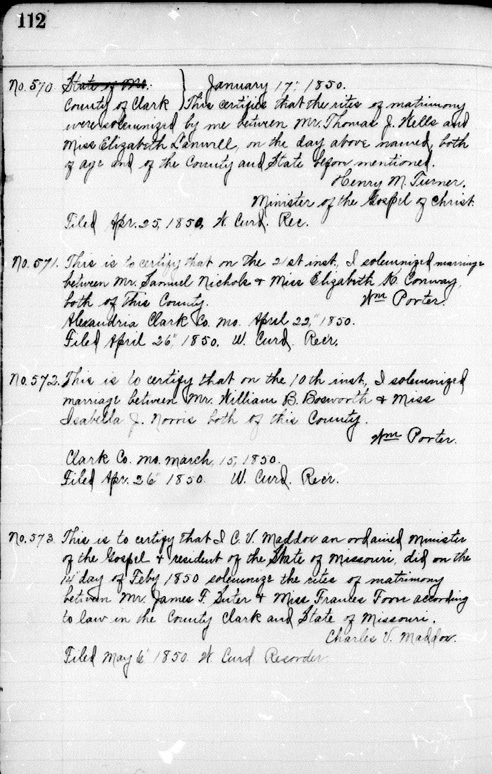 112
No. 570. State of Mo. } January 17: 1850.
County of Clark } This certifies that the rites of matrimony
were solemnized by me between Mr. Thomas J. Wells and
Miss Elizabeth Lanwill, on the day above named, both
of age and of the County and State before mentioned.
Henry M. Turner.
Minister of the Gospel of Christ.
Filed Apr. 25, 1850, W. Curd, Rec.
No. 571. This is to certify that on the 21st inst, I solemnized marriage
between Mr. Samuel Nichols & Miss Elizabeth K. Conway,
both of This County. Wm Porter.
Alexandria Clark Co. Mo. April 22," 1850.
Filed April 26," 1850. W. Curd, Recr.
No. 572. This is to certify that on the 10th inst, I solemnized
marriage between Mr. William B. Bosworth & Miss
Isabella J. Norris both of this County.
Wm Porter.
Clark Co. Mo. March, 15, 1850.
Filed Apr. 26" 1850. W. Curd, Recr.
No. 573. This is to certify that I C. V. Maddox an ordained minister
of the Gospel & resident of the State of Missouri, did on the
day of Feby 1850 solemnize the rites of matrimony
between Mr. James F. Suter & Miss Frances Foor according
to law in the County Clark and State of Missouri.
Charles V. Maddox.
Filed May 6" 1850. W. Curd Recorder